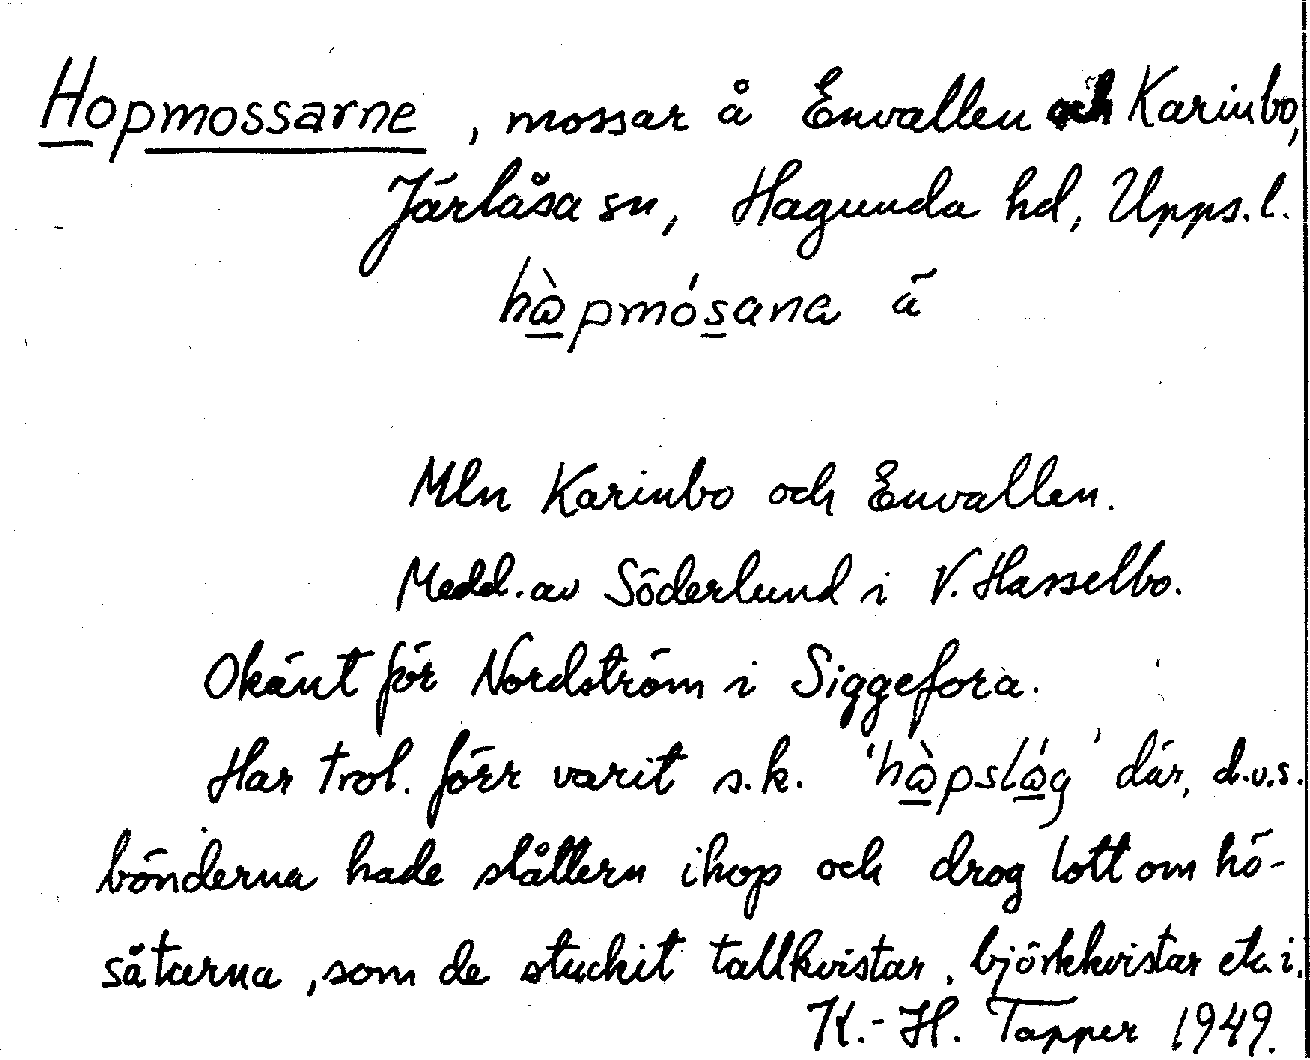 Hopmossarne, mossar å Envallen och Karinbo,
Järlåsa sn, Hagunda hd, Upps. l.
hò̱pmós̱ana ā
Mln Karinbo och Envallen.
Medd. av Söderlund i V. Hasselbo.
Okänt för Nordström i Siggefora.
Har trol. förr varit s.k. 'hò̱psló̱g' där, d.v.s.
bönderna hade slåttern ihop och drog lott om hö-
såtarna, som de stuckit tallkvistar, björkkvistar etc. i.
K.-H. Tapper 1949.